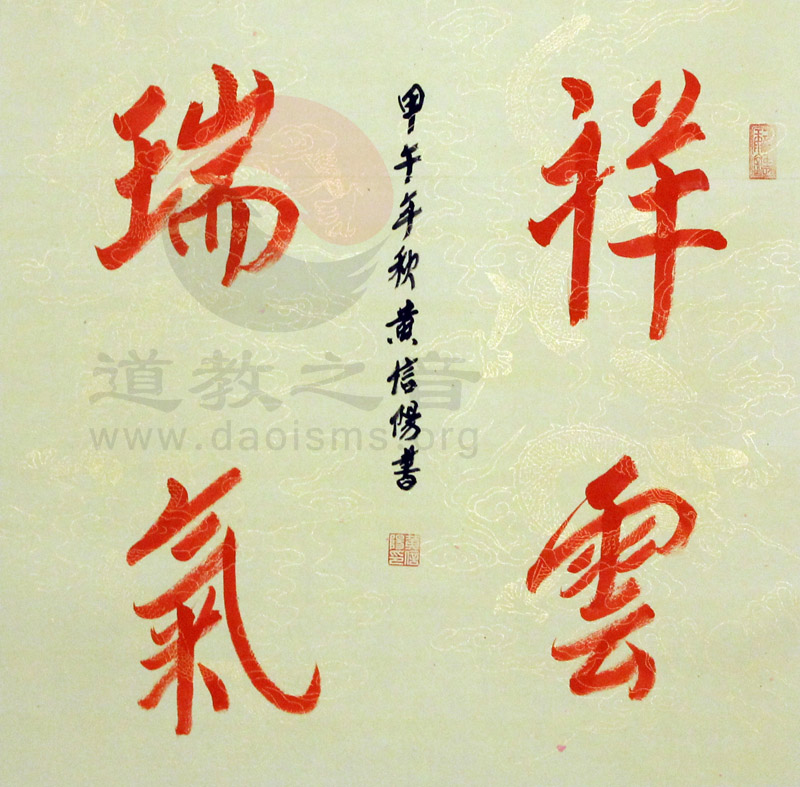 祥雲
瑞氣
甲午年秋黄信陽書
道教之音
www.daoisms.org